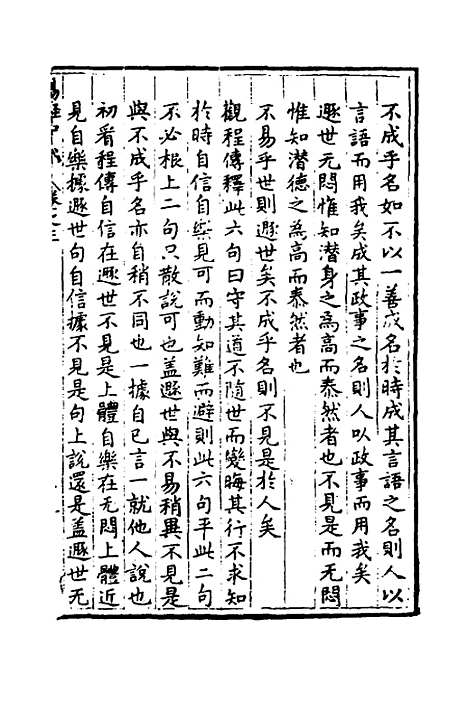 不成乎名如不以一善成名於時成其言語之名則人以
言語而用我矣成其政事之名則人以政事而用我矣
遯世无悶惟知潛身之為高而泰然者也不見是而无悶
惟知潛德之為高而泰然者也
不易乎世則遯世矣不成乎名則不見是於人矣
觀程傳釋此六句曰守其道不隨世而變晦其行不求知
於時自信自樂見可而動知難而避則此六句平此二句
不必根上二句只散說可也蓋遯世與不易稍異不見是
與不成乎名亦自稍不同也一據自己言一就他人說也
初看程傳自信在遯世不見是上體自樂在无悶上體近
見自樂據遯世句自信據不見是句上說還是蓋遯世无